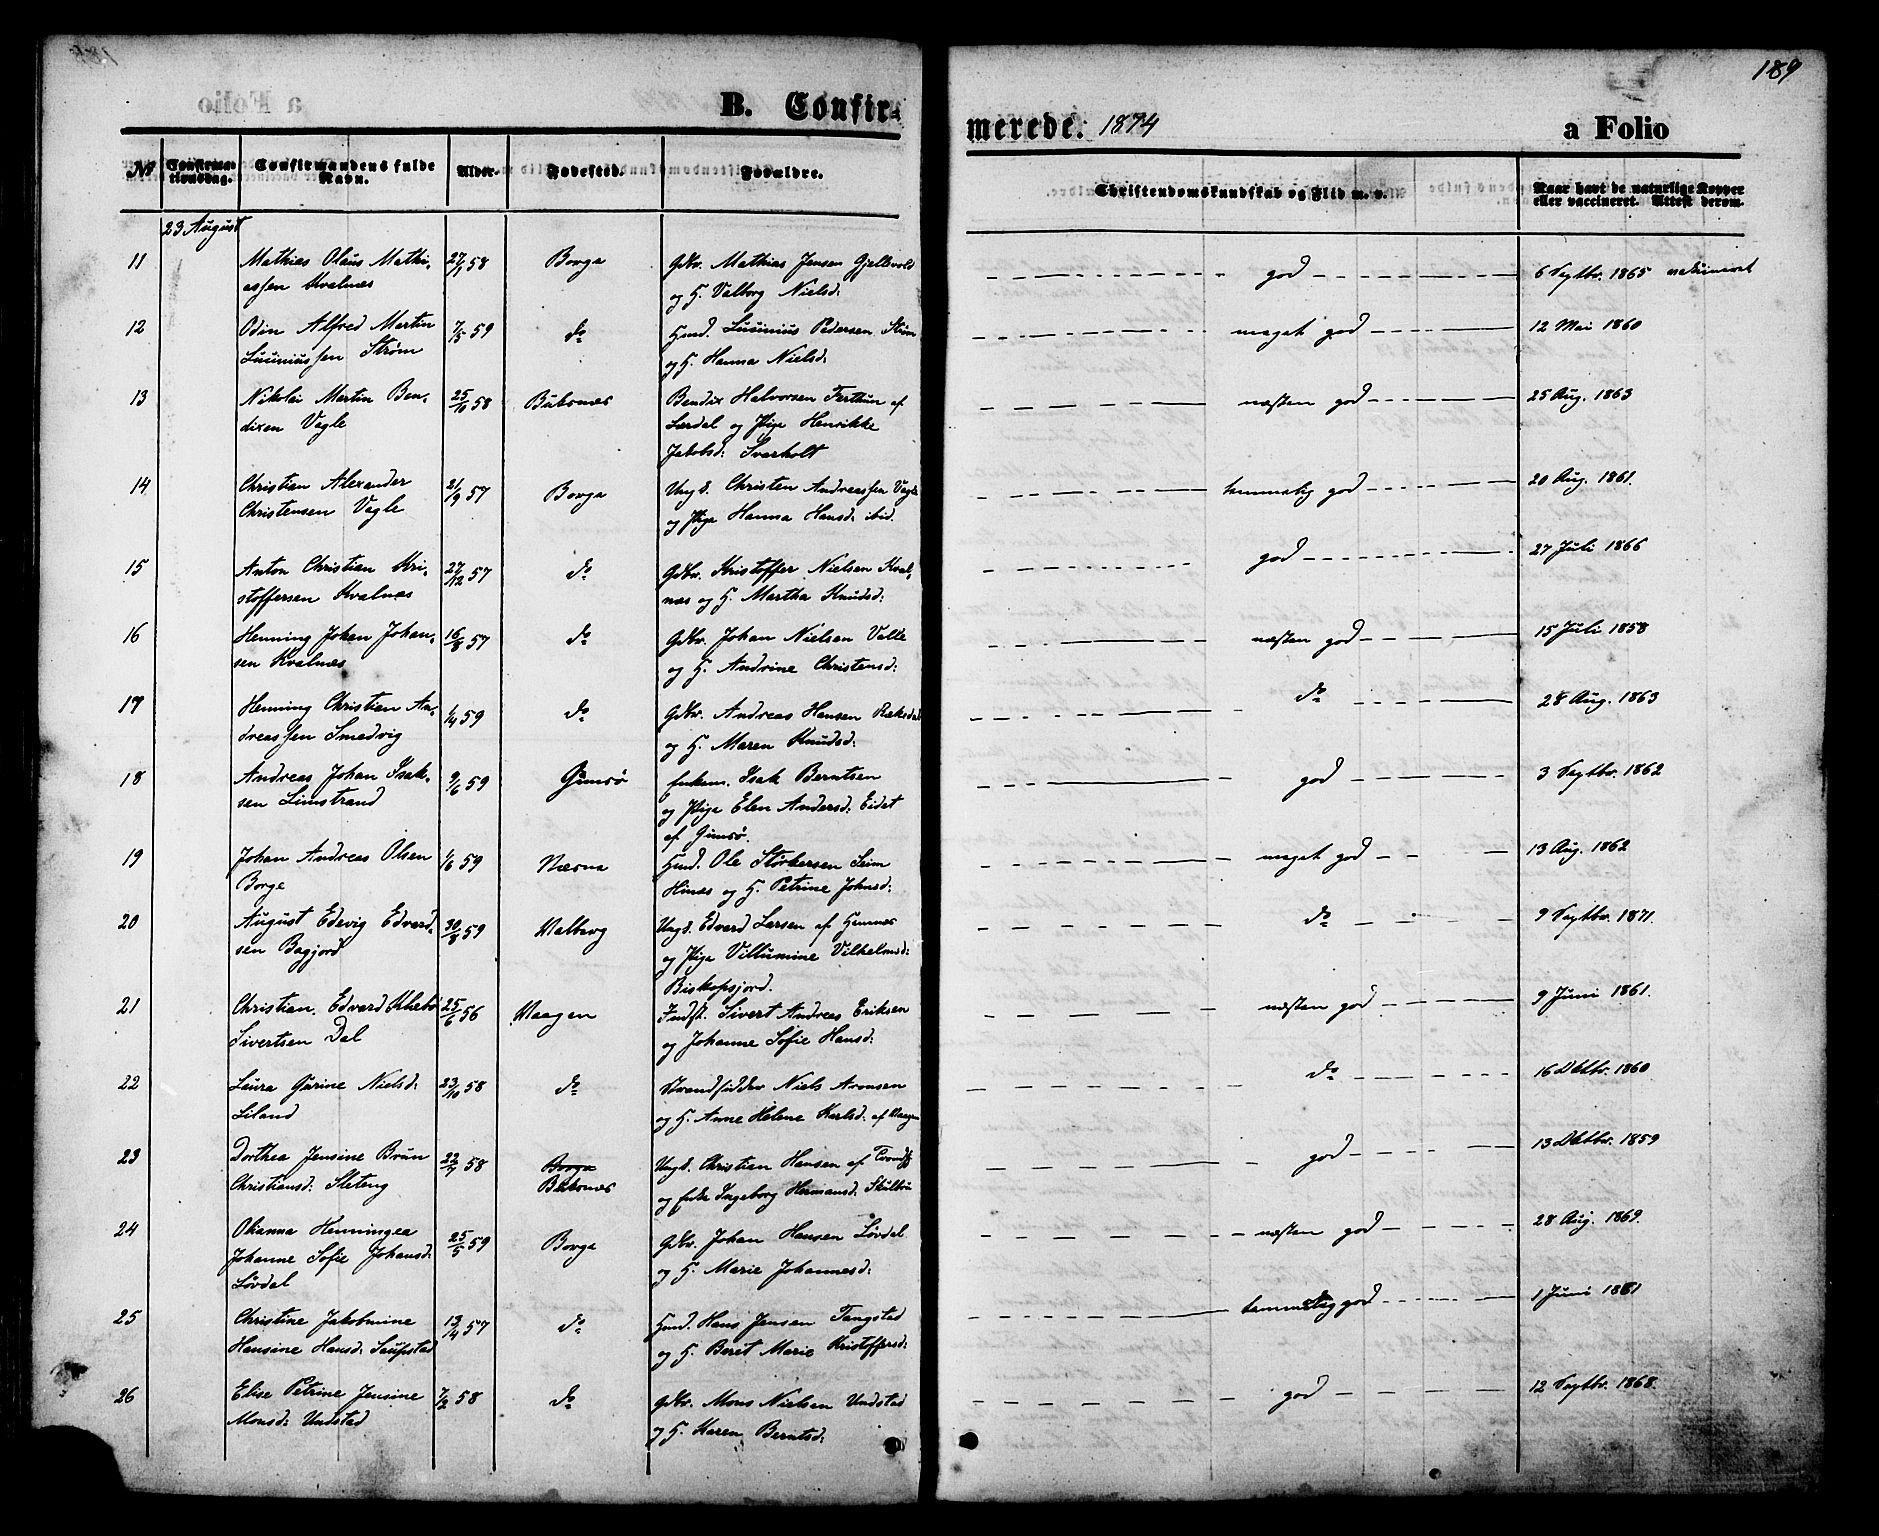 189
B. Confir-
merede. 1874
a Folio
№ Confirmationsdag. Confirmandens fulde Navn. Alder. Fødested. Forældre. Christendomskundskab og Flid m. v. Naar havt de naturlige Kopper eller vaccineret. Attest derom.
23 August
11 Mathias Olaus Mathi- 27/1 58 Borge Gdbr. Mathias Jensen Gjellevold god 6 Septbr. 1865
assen Kvalnæs og H. Valborg Nielsd:
12 Odin Alfred Martin 7/3 59 do Husmd. Lucinius Pedersen Strøm meget god 12 Mai 1860
Luciniussen Strøm og H. Hanna Nielsd:
13 Nikolai Martin Ben- 25/10 58 Buksnæs Bendix Halvorsen Ferthun af næsten god 25 Aug. 1863
dixen Vagle Lærdal og Pige Henrikke
Jakobsd: Sverholt
14 Christian Alexander 21/9 57 Borge Ungk. Christen Andreassen Vagle temmelig god 20 Aug. 1861.
Christensen Vagle og Pige Hanna Hansd: ibid.
15 Anton Christian Kri- 27/12 57 do Gdbr. Kristoffer Nielsen Kval- god 27 Juli 1866
stoffersen Kvalnæs næs og H. Martha Knudsd:
16 Henning Johan Johan- 16/8 57 do Gdbr. Johan Nielsen Valle næsten god 15 Juli 1858
sen Kvalnæs og H. Andrine Christensd:
17 Henning Christian An- 1/4 59 do Gdbr. Andreas Hansen Ræksdal do 28 Aug. 1863
dreassen Smedvig og H. Maren Knudsd:
18 Andreas Johan Isak- 9/6 59 Gimsø Enkem. Isak Berntsen god 3 Septbr. 1862
sen Limstrand og Pige Elen Andersd: Eidet
af Gimsø.
19 Johan Andreas Olsen 1/6 59 Næsna Husmd. Ole Størkersen Seim meget god 13 Aug. 1862
Borge Hinæs og H. Petrine Johnsd:
20 August Edevig Edvard- 30/8 59 Valberg Ungk. Edvard Larsen af Hemnæs do 9 Septbr. 1871.
sen Bagjord og Pige Villumine Vilhelmsd:
Biskopsjord.
21 Christian Edvard 25/6 56 Vaagen Indst. Sivert Andreas Eriksen næsten god 9 Juni 1861.
Sivertsen Dal og Johanne Sofie Hansd:
22 Laura Gurine Nielsd: 23/10 58 do Strandsidder Niels Aronsen do 16 Oktbr. 1860
Liland og H. Anne Helene Karlsd: af Vaagen
23 Dorthea Jensine Brun 58 Borge Ungk. Christian Hansen af god 13 Oktbr. 1859
Christiansd: Steteng Buksnæs og Enke Ingeborg Hermansd: Skulbru
24 Okianna Henningea 25/5 59 Borge Gdbr. Johan Hansen Løvdal næsten god 28 Aug. 1869.
Johanne Sofie Johansd: og H. Marie Johannesd:
Løvdal
25 Christine Jakobmine 13/4 57 do Husmd. Hans Jensen Tangstad temmelig god 1 Juni 1861
Hansine Hansd: Saupstad og H. Beret Marie Kristoffersd:
26 Elise Petrine Jensine 7/2 58 do Gdbr. Mons Nielsen Unstad god 12 Septbr. 1868.
Monsd: Undstad og H. Karen Berntsd: